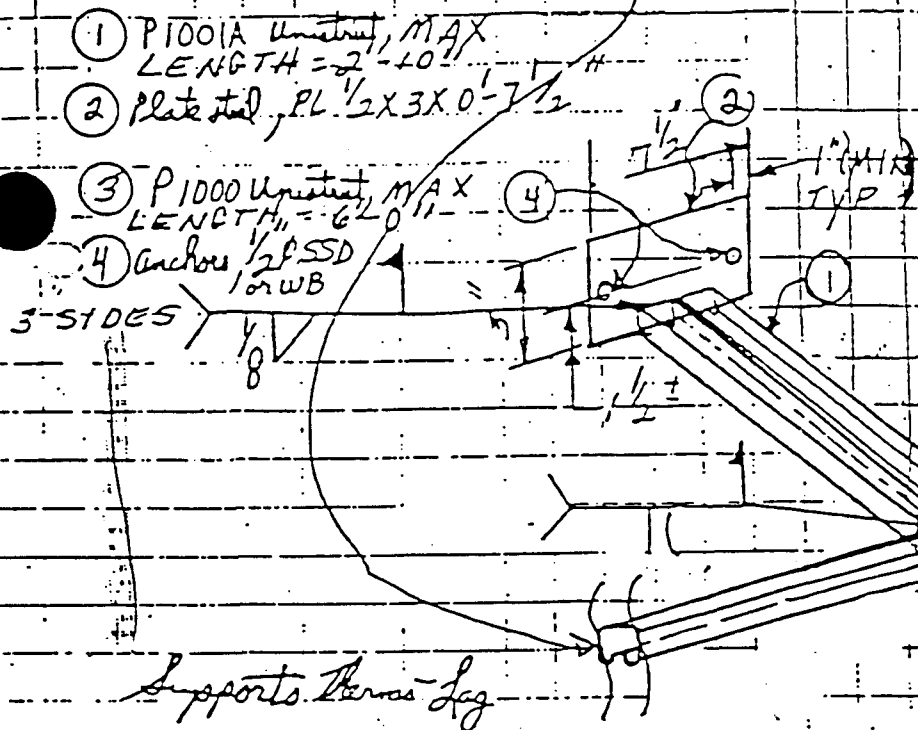 ① P1001A Unistrut, MAX
LENGTH = 2'-10"
② Plate steel, PL 1/2 X 3 X 0'-7 1/2"
③ P1000 Unistrut, MAX
LENGTH = 6'-0"
④ Anchors 1/2 ø SSD
or WB
3-SIDES
1/8
7 1/2
②
1" (MIN)
TYP
④
①
3"
1 1/2 ±
Supports Thermo-Lag